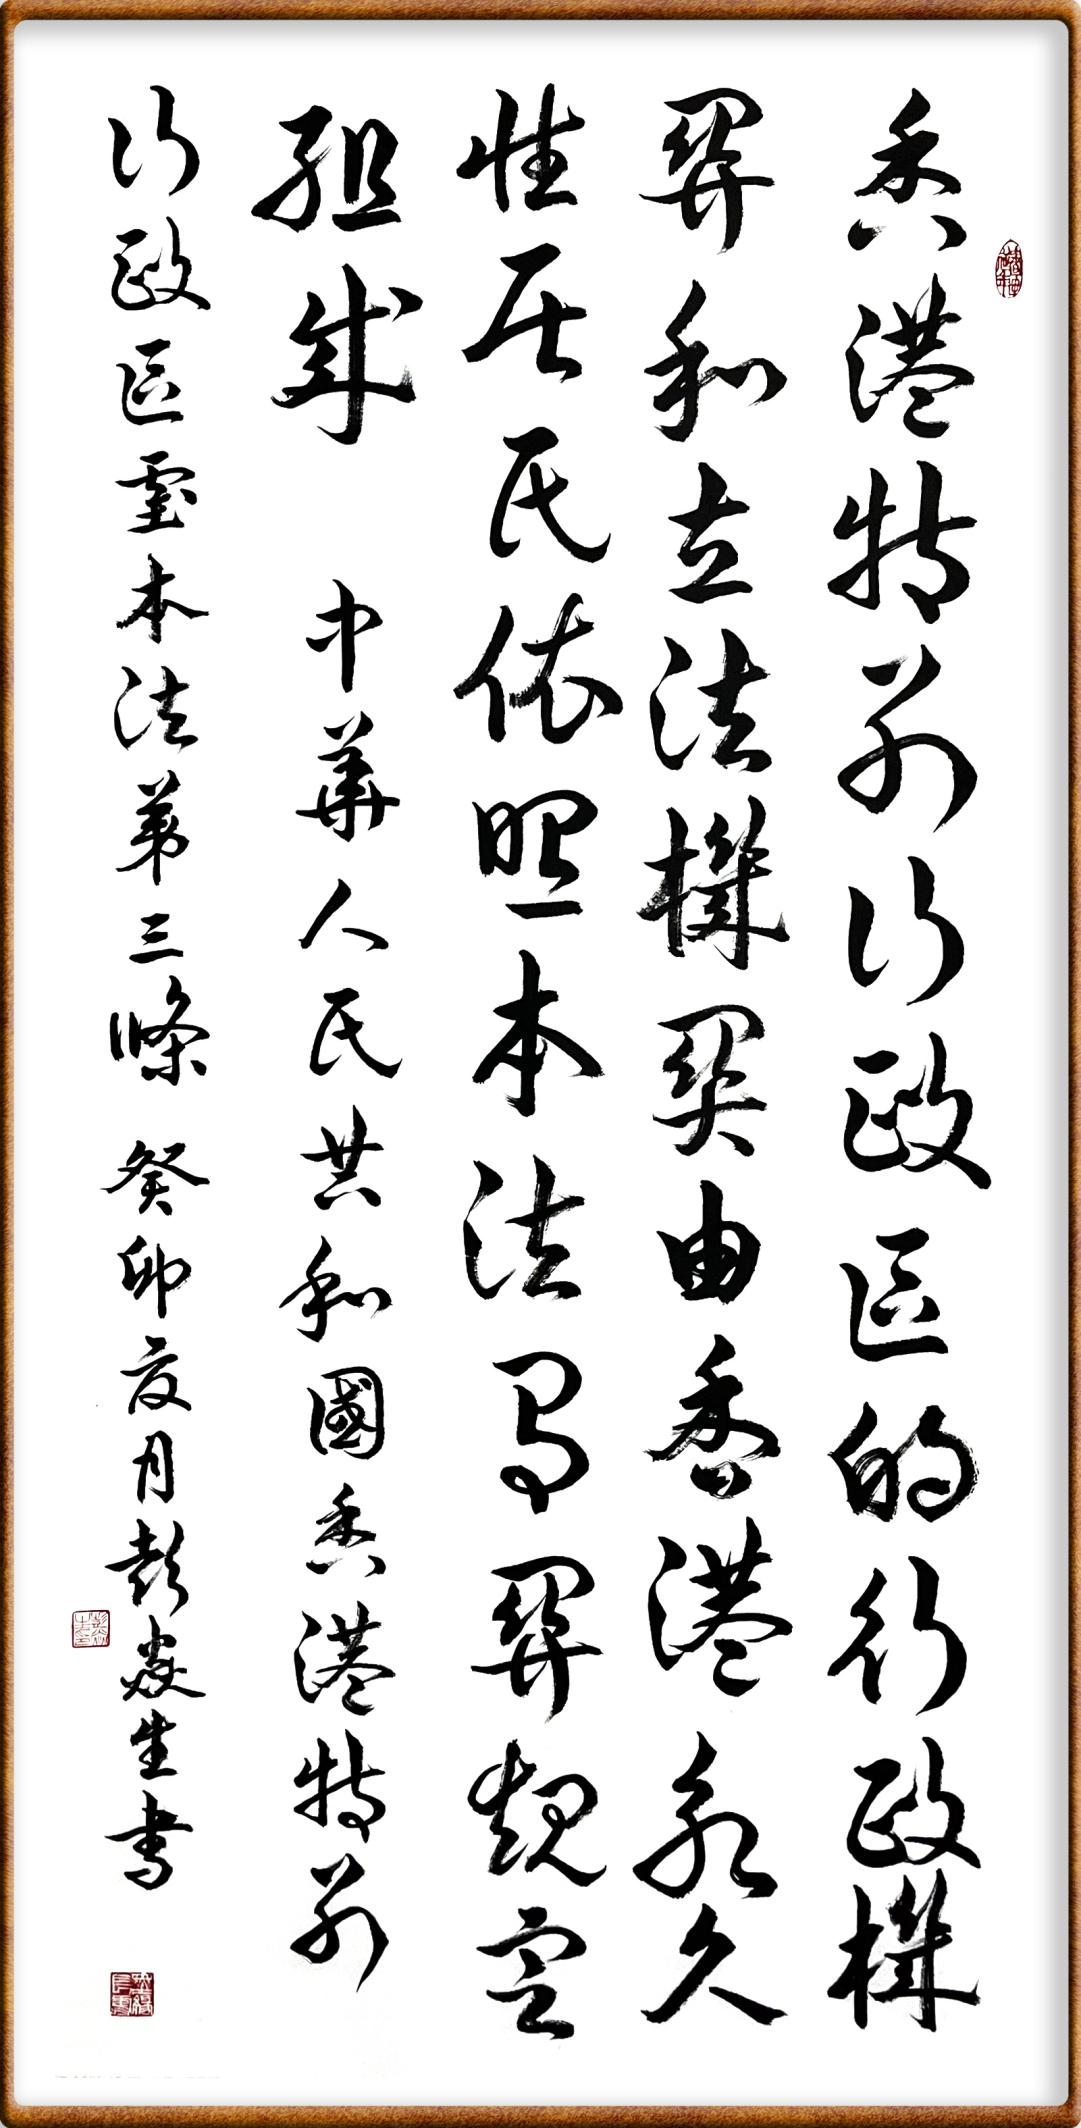 香港特別行政區的行政機
關和立法機關由香港永久
性居民依照本法有關規定
組成 中華人民共和國香港特別
行政區基本法第三條 癸卯夏月彭焱生書